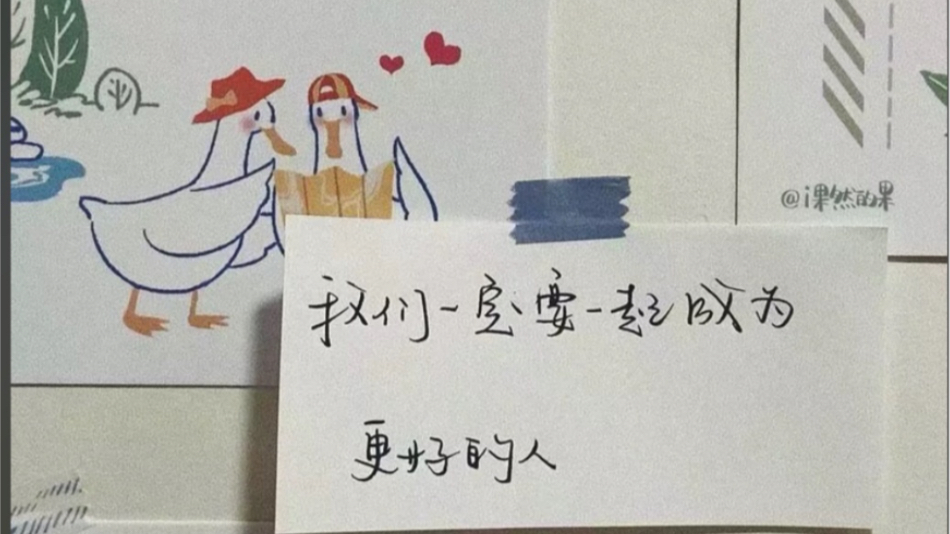 @i果然的果
我们一定要一起成为
更好的人